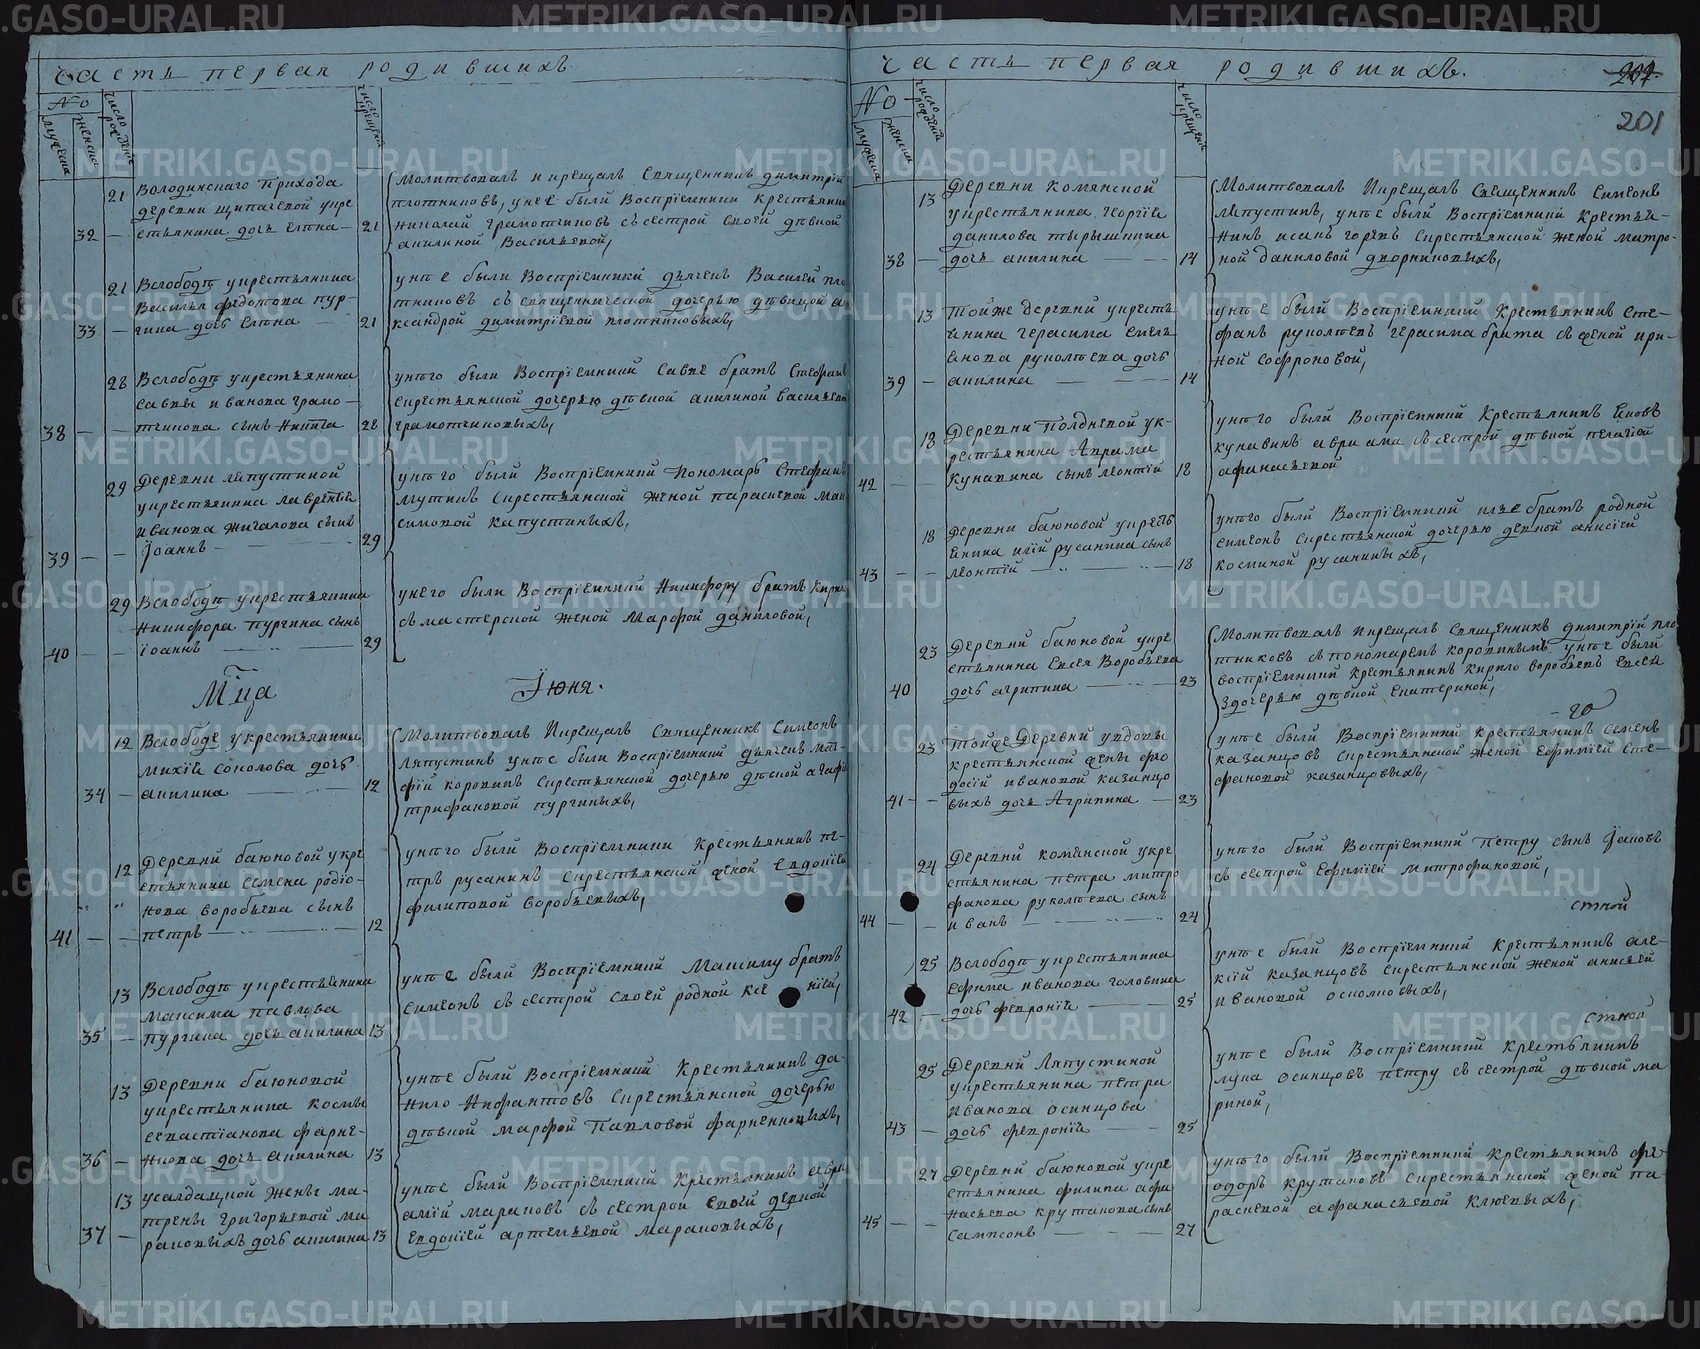 часть первая родившихъ
№
мужеска
женска
число рождений
число крещений
32 — 21 Володинскаго прихода
деревни щипачевой укре
стьянина дочь елена — 21
Молитвовалъ икрещалъ Священникъ димитрий
плотниковъ, унее были Восприемники крестьянинъ
николай грамотчиковъ съсестрой своей девкой
акилиной Васильевой,
33 — 21 Вслободе укрестьянина
Василья федотова пур-
гина дочь елена — 21
унее были Восприемники дьячекъ Василей пло
тниковъ съ священнической дочерью девицой але
ксандрой димитриевой плотниковыхъ,
38 — — 28 Вслободе укрестьянина
Саввы иванова грамо-
тчикова сынъ никита 28
унего были Восприемники Савве братъ Стефанъ
скрестьянской дочерью девкой акилиной васильевой
грамотчиковыхъ,
39 — — 29 Деревни ляпустиной
укрестьянина лаврентия
иванова жигалова сынъ
Iоаннъ — 29
унего были Восприемники Пономарь Стефанъ
мутинъ скрестьянской женой параскевой мак
симовой капустиныхъ,
40 — — 29 Вслободе укрестьянина
никифора пургина сынъ
iоаннъ — 29
унего были Восприемники Никифору братъ Кирил
съ мастерской женой марфой даниловой,
Мца Iюня.
34 — 12 Вслободе укрестьянина
михия соколова дочь
акилина — 12
Молитвовалъ Икрещалъ Священникъ Симеонъ
Ляпустинъ унее были Восприемники дьячекъ мат-
фий коровинъ скрестьянской дочерью девкой агафьей
трифановой пургиныхъ,
41 — — 12 Деревни баюновой укре
стьянина семена родио-
нова воробьева сынъ
петръ — 12
унего были Восприемники Крестьянинъ пе-
тръ русакинъ скрестьянской женой евдокией
филиповой воробьевыхъ,
35 — 13 Вслободе укрестьянина
максима павлова
пургина дочь акилина 13
унее были Восприемники Максиму братъ
симеонъ съ сестрой своей родной ксениией,
36 — 13 Деревни баюновой
укрестьянина космы
севастианова фарне-
нкова дочь акилина 13
унее были Восприемники Крестьянинъ да-
нило нифантовъ скрестьянской дочерью
девкой марфой Павловой фарненковыхъ,
37 — 13 усалдацкой жены ма-
трены григорьевой ма
раковыхъ дочь акилина 13
унее были Восприемники Крестьянинъ авра
амий мараковъ съ сестрой своей девкой
евдокией артемьевой мараковыхъ,
часть первая родившихъ.
201
№
мужеска
женска
число рождений
число крещений
38 — 13 Деревни Комянской
укрестьянина георгия
данилова тырышкина
дочь акилина — 14
Молитвовалъ Икрещалъ Священникъ Симеонъ
ляпустинъ, унее были Восприемники Крестья-
нинъ исакъ горевъ скрестьянской женой матро-
ной даниловой дворниковыхъ,
39 — 13 Тойже деревни укресть
янина герасима емел
янова руколеева дочь
акилина — 14
унее были Восприемники Крестьянинъ Сте-
фанъ руколеевъ герасима брата съ женой ири-
ной софроновой,
42 — — 18 Деревни Полдневой ук-
рестьянина Аврама
кунавина сынъ леонтий 18
унего были Восприемники Крестьянинъ Iаковъ
кунавинъ авраама съсестрой девкой пелагией
афанасьевой
43 — — 18 Деревни баюновой укресть
янина илии русакина сынъ
леонтий — 18
унего были Восприемники илье братъ родной
симеонъ скрестьянской дочерью девкой анисией
косминой русакиныхъ,
40 — 23 Деревни баюновой укре
стьянина евсея Воробьева
дочь агрипина — 23
Молитвовалъ Икрещалъ Священникъ димитрий пло
тниковъ съпономаремъ коровинымъ унее были
восприемники крестьянинъ кирило воробьевъ евсей
здочерью девкой екатериной,
41 — 23 Тойже Деревни увдовы
крестьянской жены фео
досии ивановой казанцо
выхъ дочь Агрипина — 23
унее были Восприемники крестьянинъ семенъ
казанцовъ скрестьянской женой ефимией сте-
фановой казанцовыхъ,
44 — — 24 Деревни комянской укре
стьянина петра митро
фанова руколеева сынъ
иванъ — 24
унего были Восприемники Петру сынъ Iаковъ
съ сестрой Ефимией митрофановой,
42 — 25 Вслободе укрестьянина
ефима иванова головина
дочь феврония — 25
стной
унее были Восприемники Крестьянинъ але-
ксий казанцовъ скрестьянской женой анисьей
ивановой осколковыхъ,
43 — 25 Деревни Ляпустиной
укрестьянина петра
иванова осинцова
дочь феврония — 25
стной
унее были Восприемники Крестьянинъ
лука осинцовъ петру съ сестрой девкой ма
риной,
45 — — 27 Деревни баюновой укре
стьянина филипа афа
насьева крутакова сынъ
Сампсонъ — 27
унего были Восприемники Крестьянинъ фе-
одоръ крутаковъ скрестьянской женой па
раскевой афанасьевой клюевыхъ,
METRIKI.GASO-URAL.RU